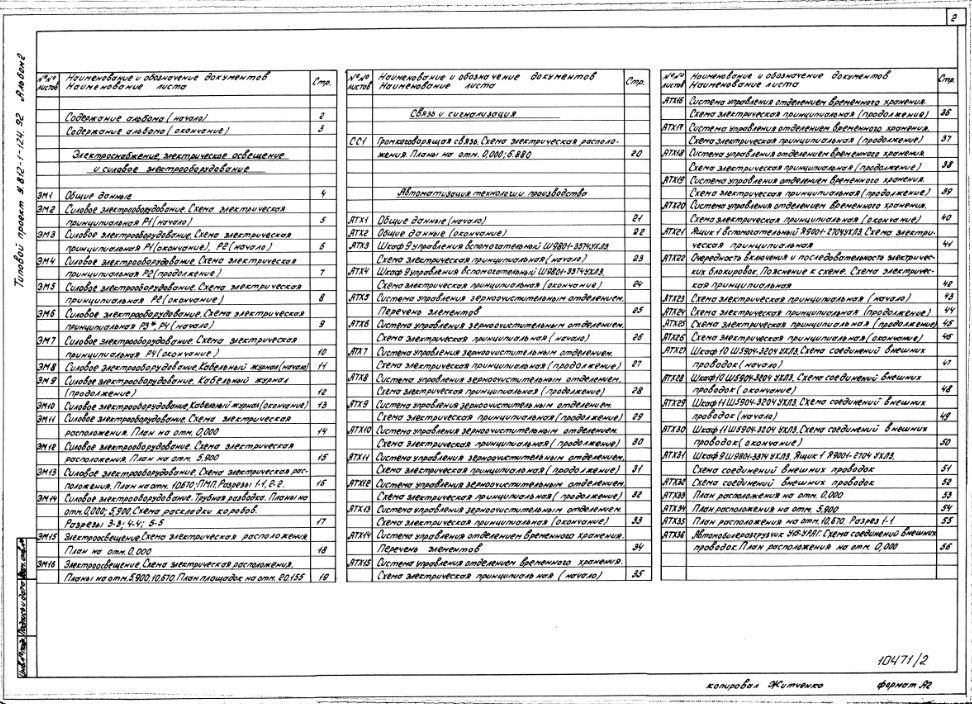 2
Типовой проект № 812-1-124.92 Альбом 2
№№ листов
Наименование и обозначение документов
Наименование листа
Стр.
Содержание альбома (начало) 2
Содержание альбома (окончание) 3
Электроснабжение, электрическое освещение
и силовое электрооборудование
ЭМ1 Общие данные 4
ЭМ2 Силовое электрооборудование. Схема электрическая
принципиальная Р1 (начало) 5
ЭМ3 Силовое электрооборудование. Схема электрическая
принципиальная Р1 (окончание), Р2 (начало) 6
ЭМ4 Силовое электрооборудование. Схема электрическая
принципиальная Р2 (продолжение) 7
ЭМ5 Силовое электрооборудование. Схема электрическая
принципиальная Р2 (окончание) 8
ЭМ6 Силовое электрооборудование. Схема электрическая
принципиальная Р3*, Р4 (начало) 9
ЭМ7 Силовое электрооборудование. Схема электрическая
принципиальная Р4 (окончание) 10
ЭМ8 Силовое электрооборудование. Кабельный журнал (начало) 11
ЭМ9 Силовое электрооборудование. Кабельный журнал
(продолжение) 12
ЭМ10 Силовое электрооборудование. Кабельный журнал (окончание) 13
ЭМ11 Силовое электрооборудование. Схема электрическая
расположения. План на отм. 0,000 14
ЭМ12 Силовое электрооборудование. Схема электрическая
расположения. План на отм. 5,900 15
ЭМ13 Силовое электрооборудование. Схема электрическая рас-
положения. План на отм. 10,670; ПМП. Разрезы 1-1, 2-2. 16
ЭМ14 Силовое электрооборудование. Трубная разводка. Планы на
отм. 0,000; 5,900. Схема раскладки коробов.
Разрезы 3-3; 4-4; 5-5 17
ЭМ15 Электроосвещение. Схема электрическая расположения
План на отм. 0,000 18
ЭМ16 Электроосвещение. Схема электрическая расположения.
Планы на отм. 5.900, 10,670. План площадок на отм. 20.155 19
№№ листов
Наименование и обозначение документов
Наименование листа
Стр.
Связь и сигнализация
СС1 Громкоговорящая связь. Схема электрическая располо-
жения. Планы на отм. 0,000; 6.880 20
Автоматизация технологии производства
АТХ1 Общие данные (начало) 21
АТХ2 Общие данные (окончание) 22
АТХ3 Шкаф 9 управления вспомогательный Ш9801-3374УХЛ3.
Схема электрическая принципиальная (начало) 23
АТХ4 Шкаф 9 управления вспомогательный Ш9801-3374УХЛ3.
Схема электрическая принципиальная (окончание) 24
АТХ5 Система управления зерноочистительным отделением.
Перечень элементов 25
АТХ6 Система управления зерноочистительным отделением.
Схема электрическая принципиальная (начало) 26
АТХ7 Система управления зерноочистительным отделением.
Схема электрическая принципиальная (продолжение) 27
АТХ8 Система управления зерноочистительным отделением.
Схема электрическая принципиальная (продолжение) 28
АТХ9 Система управления зерноочистительным отделением.
Схема электрическая принципиальная (продолжение) 29
АТХ10 Система управления зерноочистительным отделением.
Схема электрическая принципиальная (продолжение) 30
АТХ11 Система управления зерноочистительным отделением.
Схема электрическая принципиальная (продолжение) 31
АТХ12 Система управления зерноочистительным отделением.
Схема электрическая принципиальная (продолжение) 32
АТХ13 Система управления зерноочистительным отделением.
Схема электрическая принципиальная (окончание) 33
АТХ14 Система управления отделением временного хранения.
Перечень элементов 34
АТХ15 Система управления отделением временного хранения.
Схема электрическая принципиальная (начало) 35
№№ листов
Наименование и обозначение документов
Наименование листа
Стр.
АТХ16 Система управления отделением временного хранения.
Схема электрическая принципиальная (продолжение) 36
АТХ17 Система управления отделением временного хранения.
Схема электрическая принципиальная (продолжение) 37
АТХ18 Система управления отделением временного хранения.
Схема электрическая принципиальная (продолжение) 38
АТХ19 Система управления отделением временного хранения.
Схема электрическая принципиальная (продолжение) 39
АТХ20 Система управления отделением временного хранения.
Схема электрическая принципиальная (окончание) 40
АТХ21 Ящик 1 вспомогательный Я9001-2704УХЛ3. Схема электри-
ческая принципиальная 41
АТХ22 Очередность включения и последовательность электричес-
ких блокировок. Пояснение к схеме. Схема электричес-
кая принципиальная 42
АТХ23 Схема электрическая принципиальная (начало) 43
АТХ24 Схема электрическая принципиальная (продолжение) 44
АТХ25 Схема электрическая принципиальная (продолжение) 45
АТХ26 Схема электрическая принципиальная (окончание) 46
АТХ27 Шкаф 10 Ш5904-3204 УХЛ3. Схема соединений внешних
проводок (начало) 47
АТХ28 Шкаф 10 Ш5904-3204 УХЛ3. Схема соединений внешних
проводок (окончание) 48
АТХ29 Шкаф 11 Ш5904-3204 УХЛ3. Схема соединений внешних
проводок (начало) 49
АТХ30 Шкаф 11 Ш5904-3204 УХЛ3. Схема соединений внешних
проводок (окончание) 50
АТХ31 Шкаф 9 Ш9801-3374 УХЛ3. Ящик 1 Я9001-2704 УХЛ3.
Схема соединений внешних проводок 51
АТХ32 Схема соединений внешних проводок 52
АТХ33 План расположения на отм. 0,000 53
АТХ34 План расположения на отм. 5,900 54
АТХ35 План расположения на отм. 10,670. Разрез 1-1 55
АТХ36 Автомобилеразгрузчик Схема соединений внешних
проводок. План расположения на отм. 0,000 56
Инв. № подл. Подпись и дата
10471/2
копировал Житченко формат А2